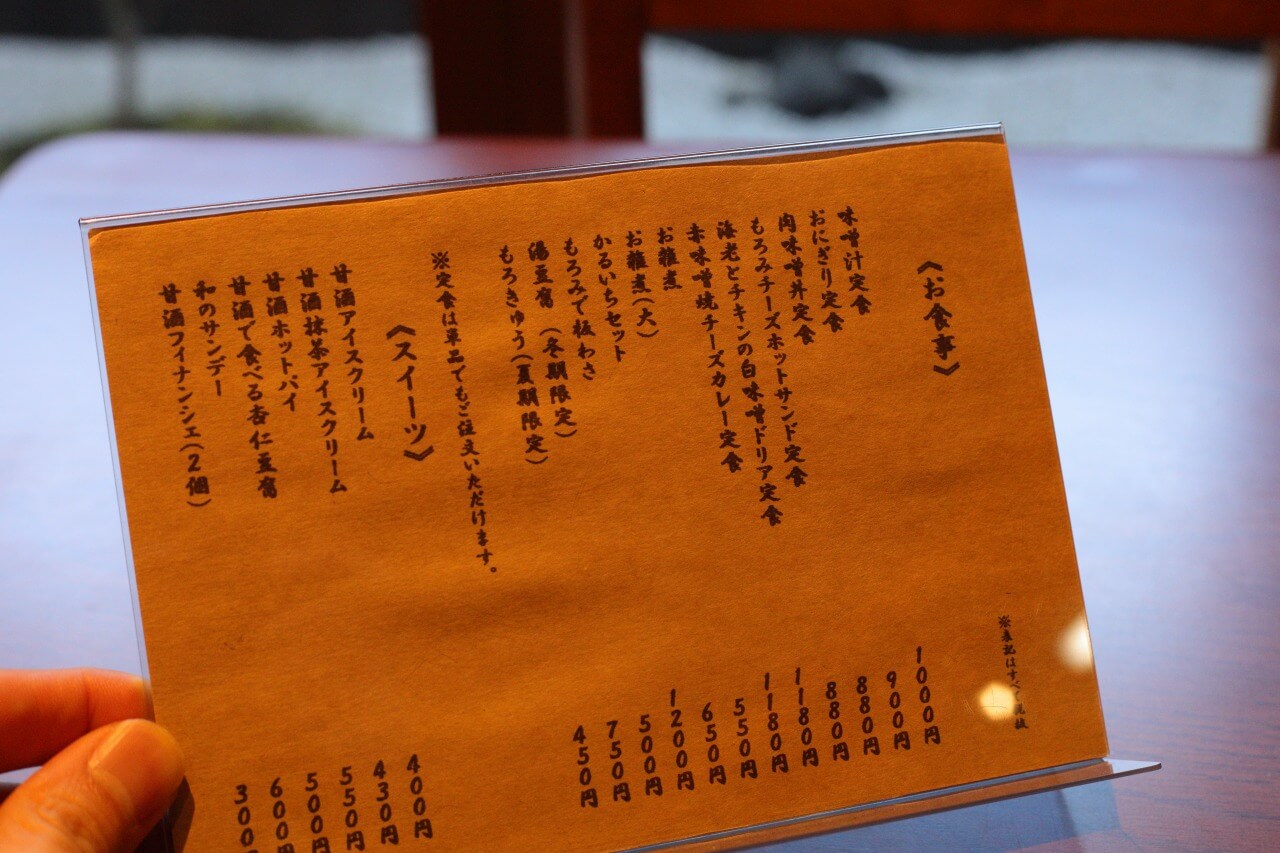 ※表記はすべて税抜
《お食事》
味噌汁定食 1000円
おにぎり定食 900円
肉味噌丼定食 880円
もろみチーズホットサンド定食 880円
海老とチキンの白味噌ドリア定食 1180円
赤味噌焼チーズカレー定食 1180円
お雑煮 550円
お雑煮(大) 650円
かるいちセット 1200円
もろみで板わさ 500円
湯豆腐 (冬期限定) 750円
もろきゅう(夏期限定) 450円
※定食は単品でもご注文いただけます。
《スイーツ》
甘酒アイスクリーム 400円
甘酒抹茶アイスクリーム 430円
甘酒ホットパイ 550円
甘酒で食べる杏仁豆腐 500円
和のサンデー 600円
甘酒フィナンシェ(2個) 300